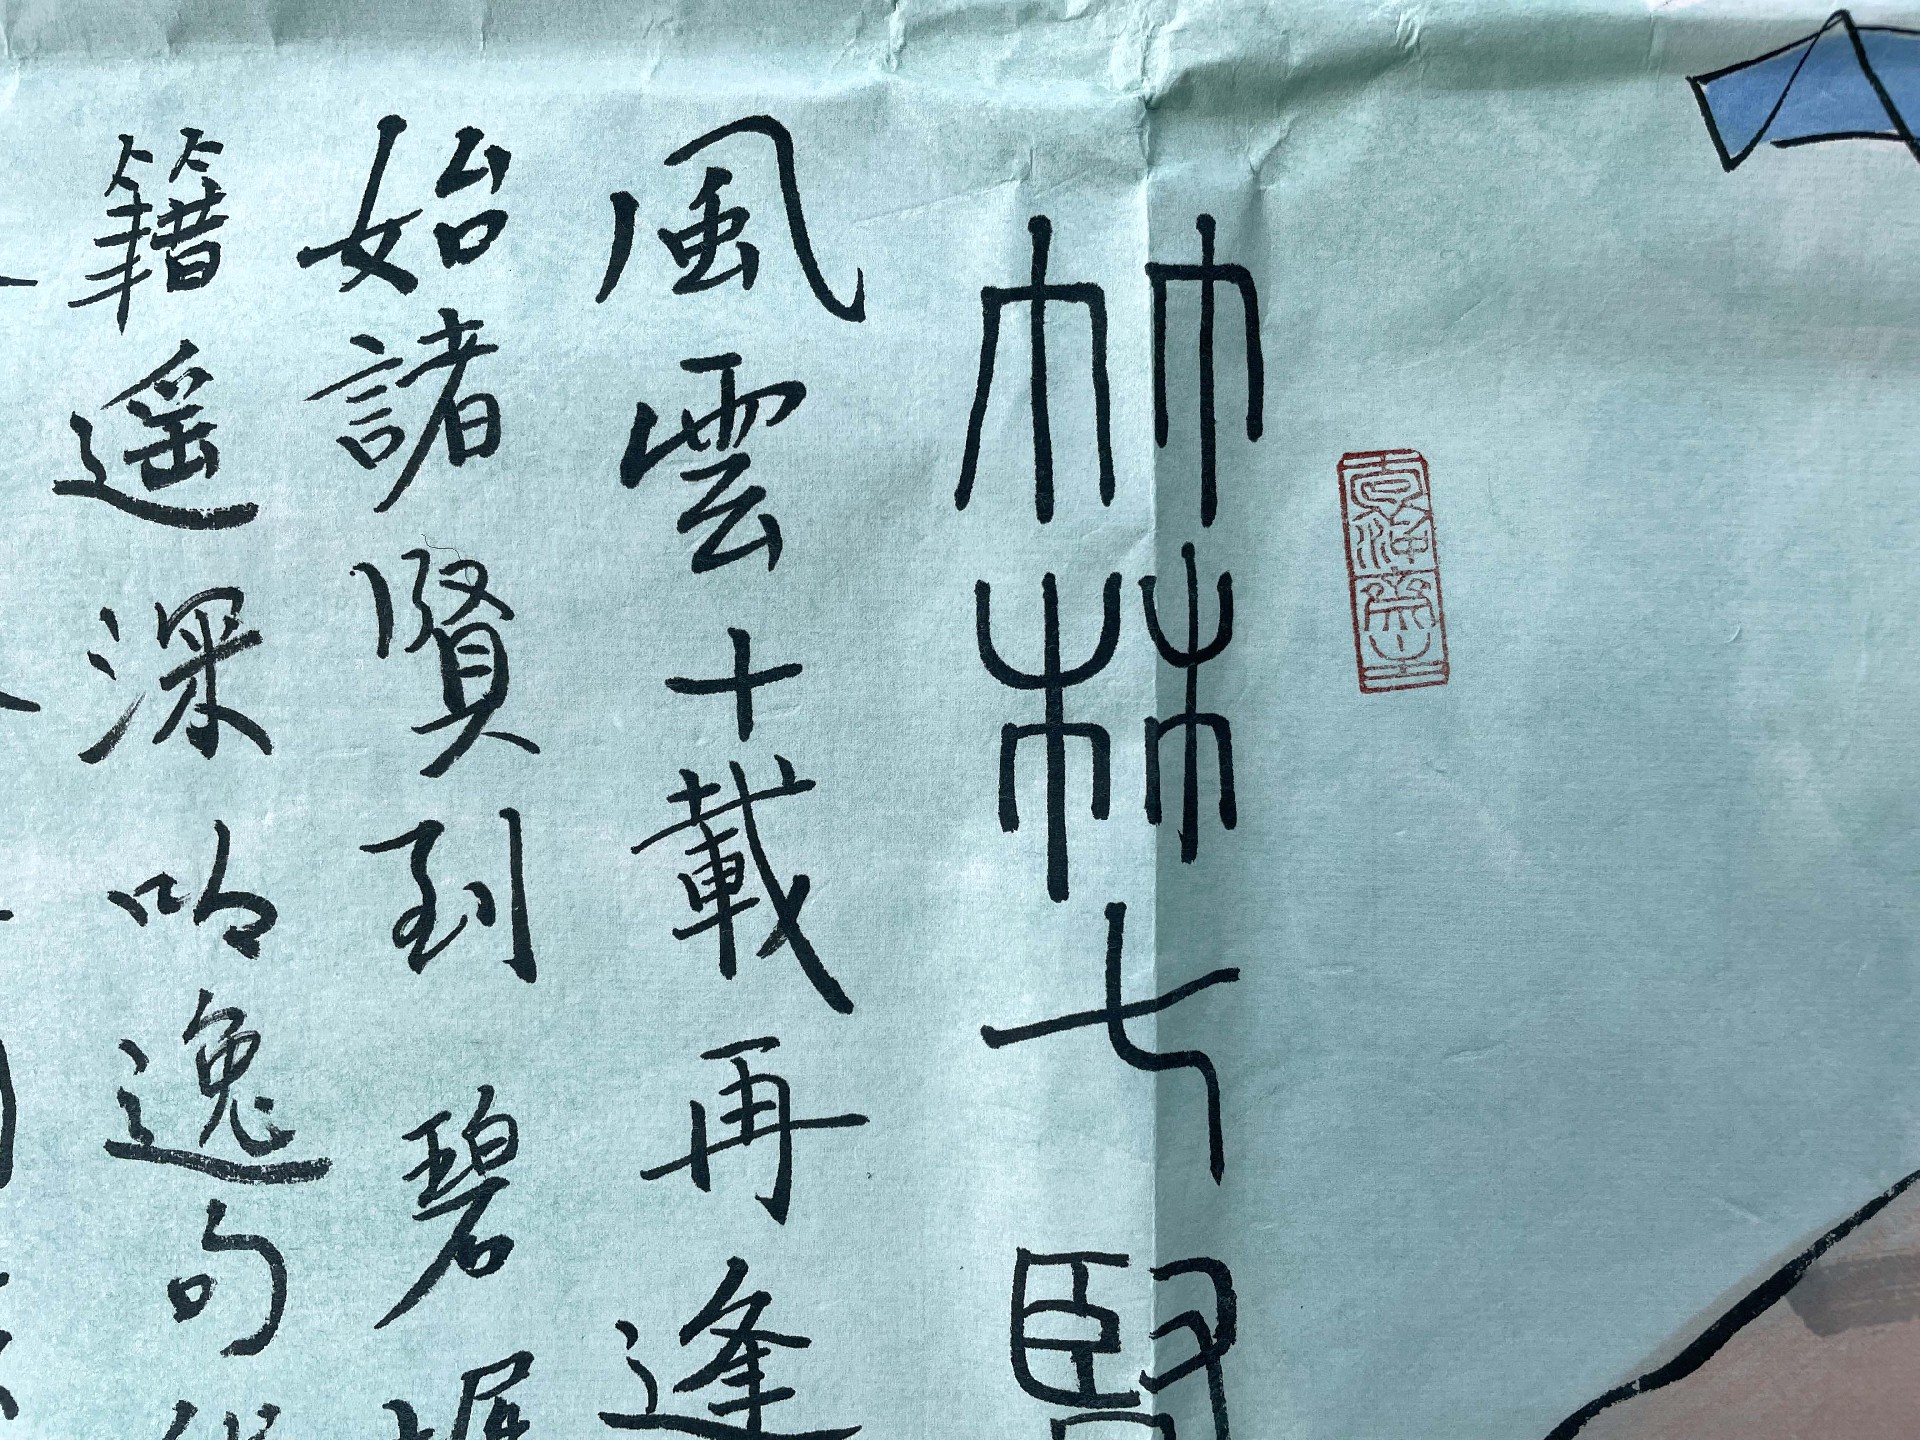 竹林七賢
風雲十載再逢
始諸賢到碧堀
籍遥深吟逸句